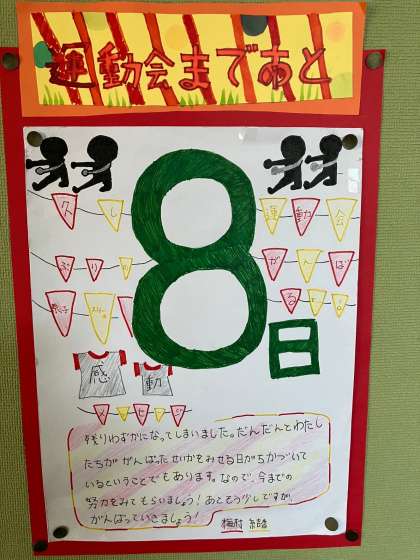 運動会まであと
8日
久し
ぶりの
運動会
がんば
る
感動
メッセージ
残りわずかになってしまいました。だんだんとわたし
たちが がんばったせいかをみせる日がちかづいて
いるということでもあります。なので、今までの
努力をみてもらいましょう！あともう少しですが
がんばっていきましょう！ 梅村